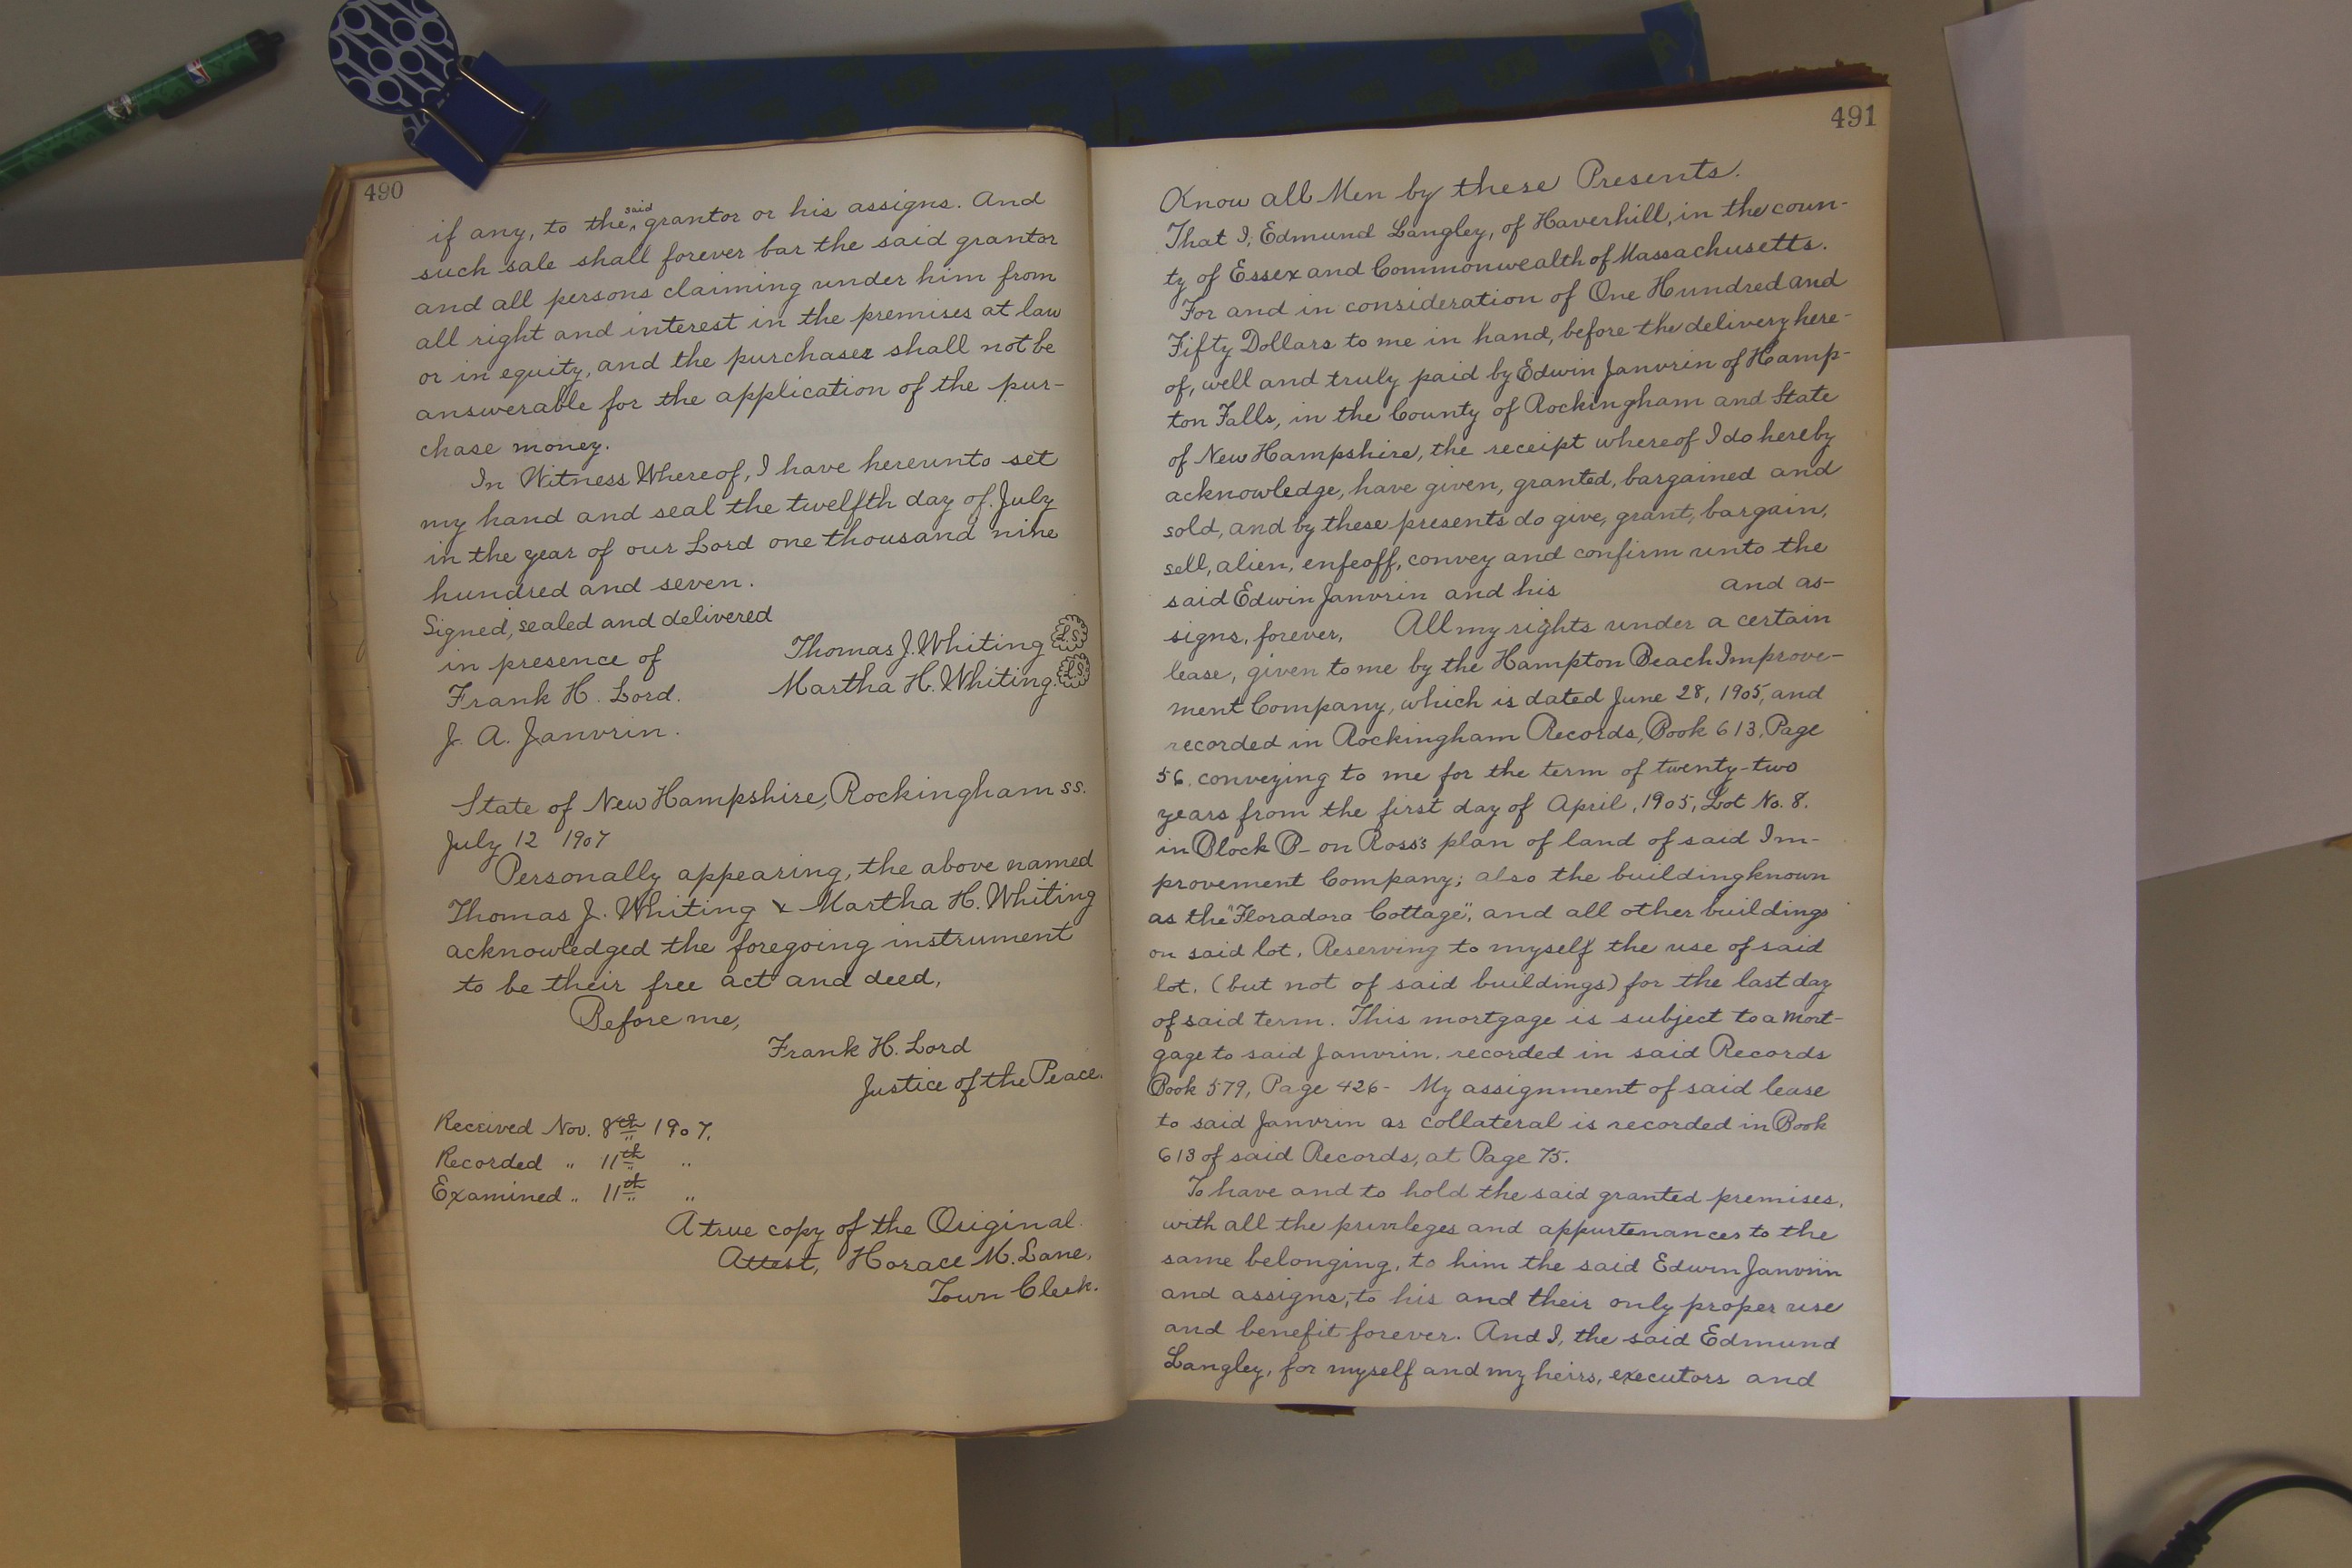 490
if any, to the said grantor or his assigns. And
such sale shall forever bar the said grantor
and all persons claiming under him from
all right and interest in the premises at law
or in equity, and the purchaser shall not be
answerable for the application of the pur-
chase money.
In Witness Whereof, I have hereunto set
my hand and seal the twelfth day of July
in the year of our Lord one thousand nine
hundred and seven.
Signed, sealed and delivered
in presence of
Thomas J. Whiting L.S.
Frank H. Lord.
Martha H. Whiting. L.S.
J. A. Janvrin.
State of New Hampshire, Rockingham ss.
July 12 1907
Personally appearing, the above named
Thomas J. Whiting & Martha H. Whiting
acknowledged the foregoing instrument
to be their free act and deed,
Before me,
Frank H. Lord
Justice of the Peace.
Received Nov. 8th 1907.
Recorded " 11th "
Examined " 11th "
A true copy of the Original.
Attest, Horace M. Lane,
Town Clerk.
491
Know all Men by these Presents.
That I, Edmund Langley, of Haverhill, in the coun-
ty of Essex and Commonwealth of Massachusetts.
For and in consideration of One Hundred and
Fifty Dollars to me in hand, before the delivery here-
of, well and truly paid by Edwin Janvrin of Hamp-
ton Falls, in the County of Rockingham and State
of New Hampshire, the receipt whereof I do hereby
acknowledge, have given, granted, bargained and
sold, and by these presents do give, grant, bargain,
sell, alien, enfeoff, convey and confirm unto the
said Edwin Janvrin and his and as-
signs, forever, All my rights under a certain
lease, given to me by the Hampton Beach Improve-
ment Company, which is dated June 28, 1905, and
recorded in Rockingham Records, Book 613, Page
56. conveying to me for the term of twenty-two
years from the first day of April, 1905, Lot No. 8.
in Block B- on Ross's plan of land of said Im-
provement Company; also the building known
as the "Floradora Cottage", and all other buildings
on said lot. Reserving to myself the use of said
lot. (but not of said buildings) for the last day
of said term. This mortgage is subject to a mort-
gage to said Janvrin. recorded in said Records
Book 579, Page 426- My assignment of said lease
to said Janvrin as collateral is recorded in Book
613 of said Records, at Page 75.
To have and to hold the said granted premises,
with all the privileges and appurtenances to the
same belonging, to him the said Edwin Janvrin
and assigns, to his and their only proper use
and benefit forever. And I, the said Edmund
Langley, for myself and my heirs, executors and